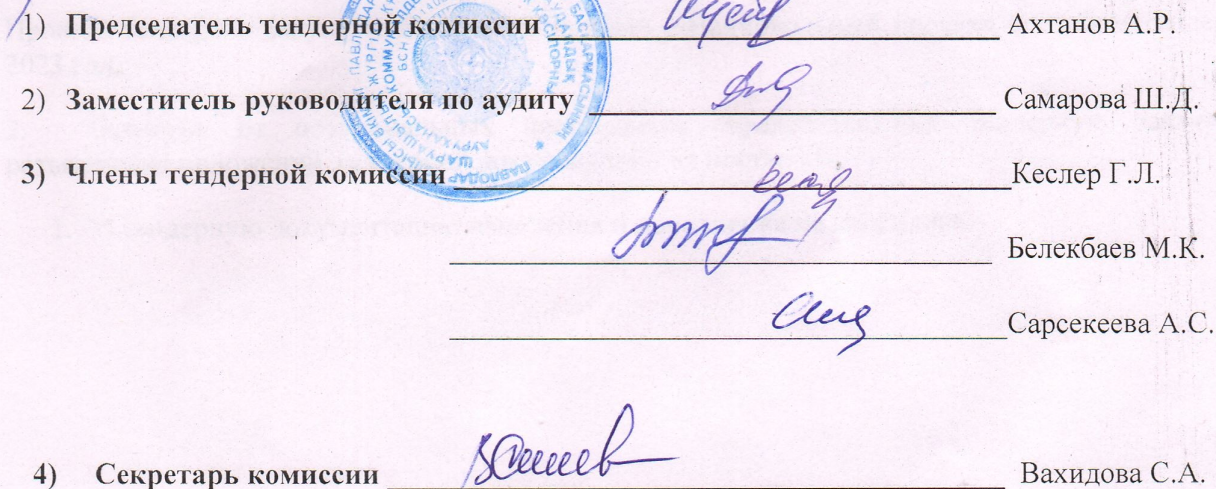 1) Председатель тендерной комиссии Ахтанов А.Р.
2) Заместитель руководителя по аудиту Самарова Ш.Д.
3) Члены тендерной комиссии Кеслер Г.Л.
Белекбаев М.К.
Сарсекеева А.С.
4) Секретарь комиссии Вахидова С.А.